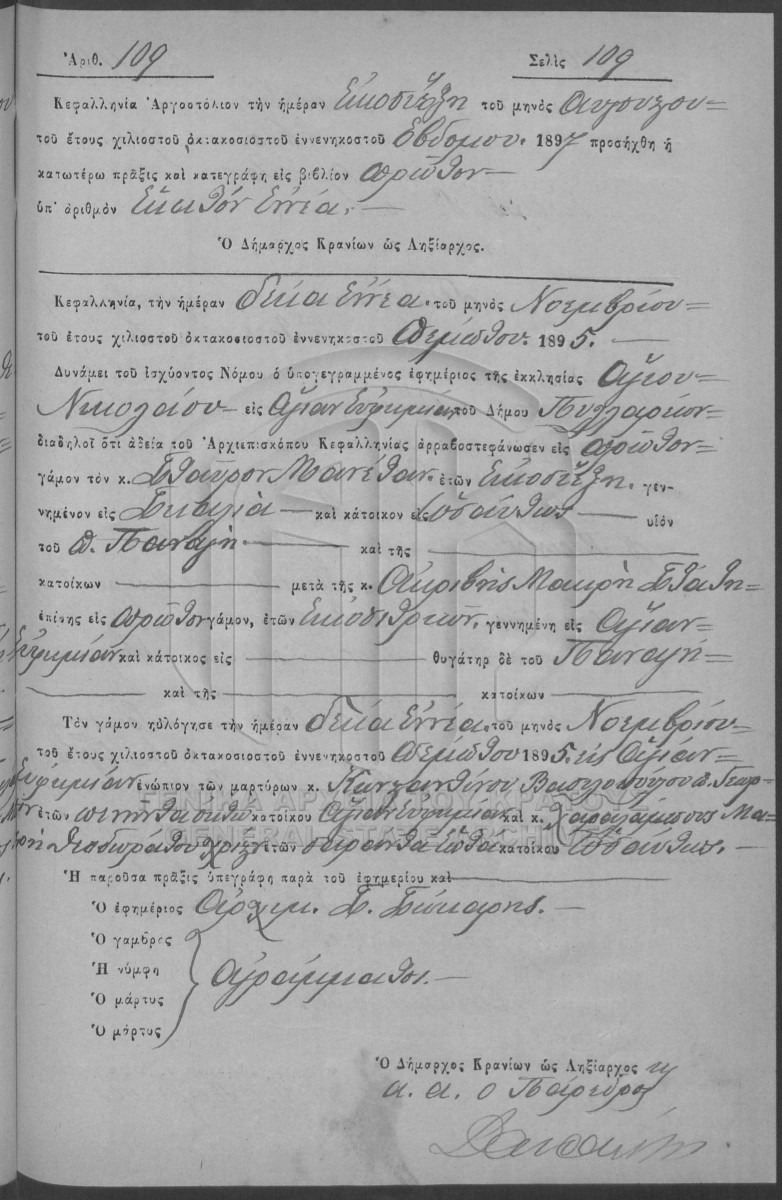 Ἀριθ. 109 Σελὶς 109
Κεφαλληνία Ἀργοστόλιον τὴν ἡμέραν Εἰκοστὴν ἕξη τοῦ μηνὸς Αὐγούστου
τοῦ ἔτους χιλιοστοῦ ὀκτακοσιοστοῦ ἐννενηκοστοῦ Ἑβδόμου. 1897 προσήχθη ἡ
κατωτέρω πρᾶξις καὶ κατεγράφη εἰς βιβλίον πρῶτον
ὑπ' ἀριθμὸν Ἑκατόν Ἐννέα.
Ὁ Δήμαρχος Κρανίων ὡς Ληξίαρχος.
Κεφαλληνία, τὴν ἡμέραν δέκα Ἐννέα. τοῦ μηνὸς Νοεμβρίου
τοῦ ἔτους χιλιοστοῦ ὀκτακοσιοστοῦ ἐννενηκοστοῦ πέμπτου. 1895.
Δυνάμει τοῦ ἰσχύοντος Νόμου ὁ ὑπογεγραμμένος ἐφημέριος τῆς ἐκκλησίας Ἁγίου
Νικολάου εἰς Ἁγίαν Εὐφημίαν τοῦ Δήμου Πυλλαρέων
διαδηλοῖ ὅτι ἀδεία τοῦ Ἀρχιεπισκόπου Κεφαλληνίας ἀρραβοστεφάνωσεν εἰς πρῶτον
γάμον τὸν κ. Σταῦρον Μανέταν. ἐτῶν Εἰκοσιέξη. γεν-
νημένον εἰς καὶ κάτοικον εἰς ὡσαύτως υἱὸν
τοῦ π. Παναγῆ καὶ τῆς
κατοίκων μετὰ τῆς κ. Ἀκριβῆς Μακρῆ Στάθη
ἐπίσης εἰς πρῶτον γάμον, ἐτῶν Εἰκοσιτριῶν. γεννημένη εἰς Ἁγίαν
Εὐφημίαν καὶ κάτοικος εἰς θυγάτηρ δὲ τοῦ Παναγῆ
καὶ τῆς κατοίκων
Τὸν γάμον ηὐλόγησε τὴν ἡμέραν δέκα Ἐννέα. τοῦ μηνὸς Νοεμβρίου
τοῦ ἔτους χιλιοστοῦ ὀκτακοσιοστοῦ ἐννενηκοστοῦ πέμπτου 1895. εἰς Ἁγίαν
Εὐφημίαν ἐνώπιον τῶν μαρτύρων κ. Κωνσταντίνου Βασιλοπούλου π. Γεωρ-
ἐτῶν πενήντα ὀκτὼ κατοίκου Ἁγίαν Εὐφημίαν καὶ κ. Χαραλάμπους Μα-
κρῆ Θεοδωράτου ἐτῶν σαράντα ἑπτὰ κατοίκου ὡσαύτως.
Ἡ παροῦσα πρᾶξις ὑπεγράφη παρὰ τοῦ ἐφημερίου καὶ
Ὁ ἐφημέριος Ἀρχιμ. Σ.
Ὁ γαμβρὸς
Ἡ νύμφη ἀγράμματοι.
Ὁ μάρτυς
Ὁ μάρτυς
Ὁ Δήμαρχος Κρανίων ὡς Ληξίαρχος
α. α. ὁ Πάρεδρος
ΓΕΝΙΚΑ ΑΡΧΕΙΑ ΤΟΥ ΚΡΑΤΟΥΣ
GENERAL STATE ARCHIVES